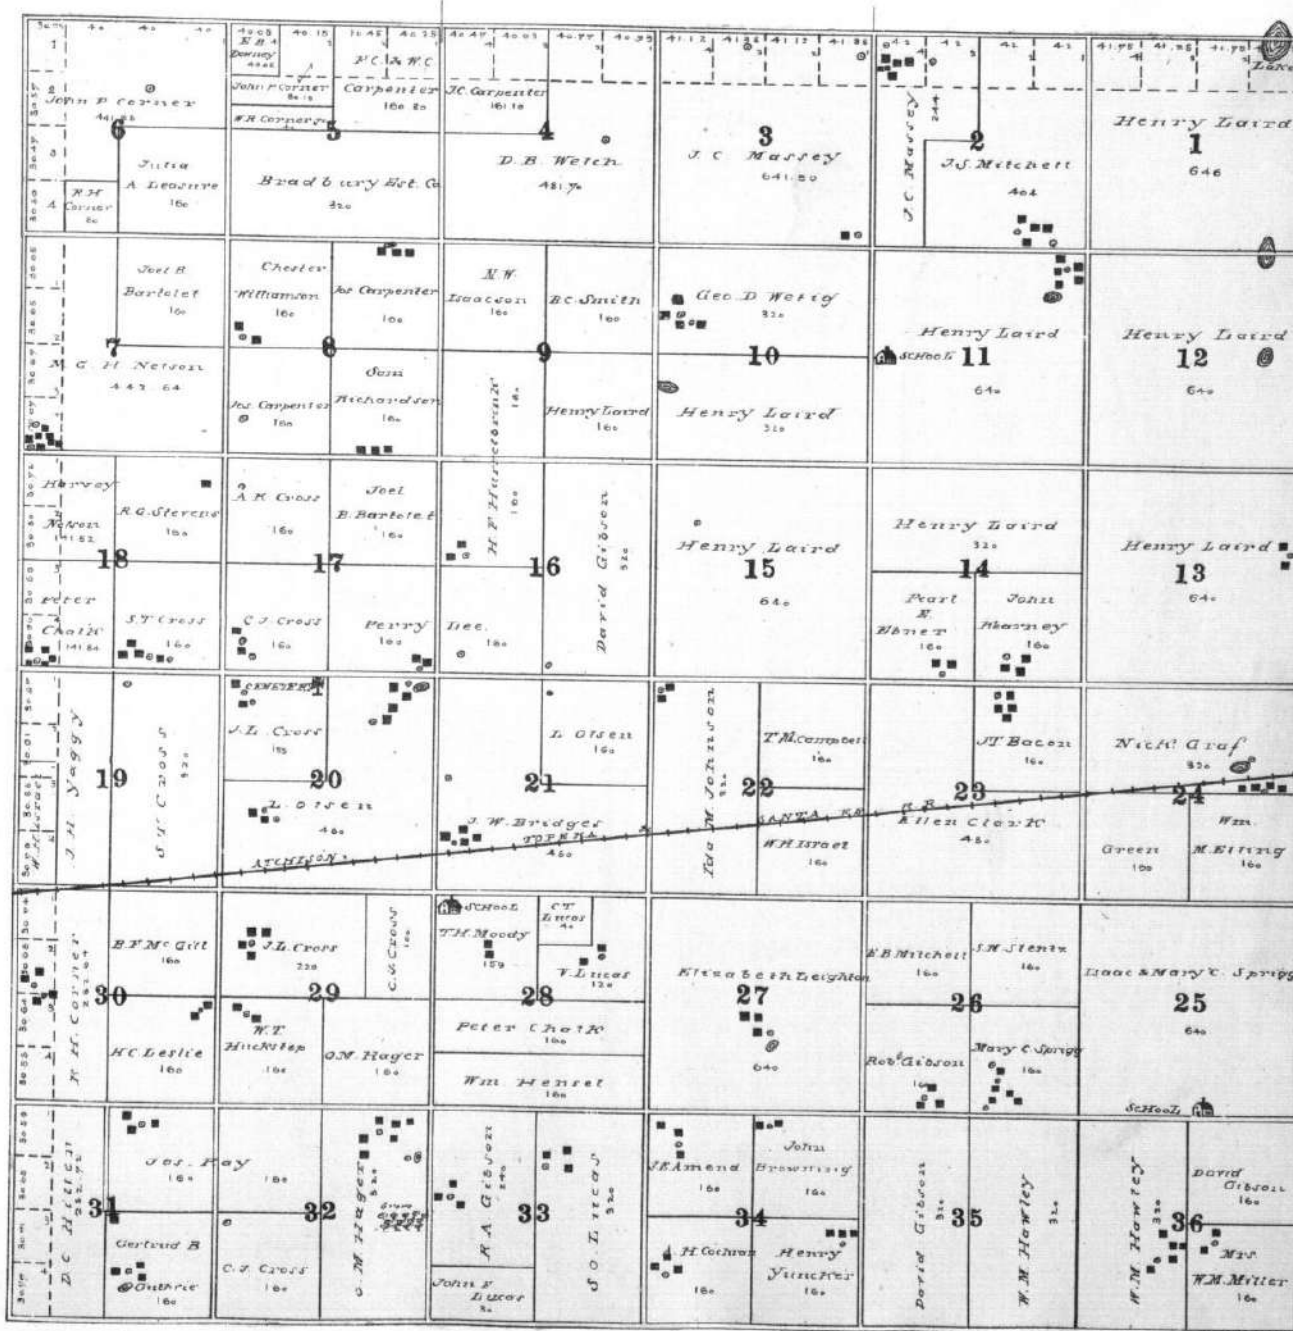 40.05 40.15 40.25 40.47 40.77 41.12 41.86 42 42 41.75 41.25
E.B.
Downey
John P Corner
441.26
6
Julia
A Leasure
160
R H
Corner
80
John P Corner
80.15
W.R Corner
5
F.C. & W.C.
Carpenter
160 80
Bradbury Est. Co
320
J.C. Carpenter
161.10
4
D. B. Welch
481.70
3
J. C. Massey
641.80
J.C. Massey
244
2
J.S. Mitchell
404
Lake
Henry Laird
1
646
Joel B
Bartolet
160
7
G H Nelson
442.64
Chester
Williamson
160
Jos Carpenter
160
8
Jos Carpenter
160
Sam
Richardson
160
N.W.
Isaacson
160
B.C. Smith
160
9
160
Henry Laird
160
H. F.
160
Geo D Wetig
320
10
Henry Laird
320
Henry Laird
SCHOOL
11
640
Henry Laird
12
640
Harvey
Nelson
141.82
R.G. Stevens
160
18
Peter
Chalk
141.84
S.T Cross
160
A R Cross
160
Joel
B. Bartolet
160
17
C J Cross
160
Perry
160
Lee.
160
16
David Gibson
320
Henry Laird
15
640
Henry Laird
320
14
Pearl
E.
Ebner
160
John
Kearney
160
Henry Laird
13
640
W.H. Israel
J. H. Yaggy
19
S.T. Cross
320
CEMETERY
J.L. Cross
155
20
L. Olsen
460
ATCHISON
L Olsen
160
21
J. W. Bridges
TOPEKA
460
&
Ida M. Johnson
320
T M. Campbell
160
22
SANTA FE
W.H. Israel
160
J.T Bacon
160
23
R. R.
Allen Clark
480
Nick. Graf
320
24
Wm.
Green
160
M. Elling
160
R H. Corner
B.F. McGill
160
30
H C Leslie
160
J.L. Cross
220
C.J. Cross
100
29
W.T
Huckstep
160
O.M. Hager
160
SCHOOL
T.H. Moody
159
C T
Lucas
40
V. Lucas
120
28
Peter Chalk
160
Wm. Hensel
160
Elizabeth Leighton
27
640
E.B Mitchell
160
S.N. Stentz
160
26
Robt Gibson
160
Mary C. Sprigg
160
Isaac & Mary C. Sprigg
25
640
SCHOOL
D C Hillen
31
Jos. Ray
160
160
Gertrud B
Guthrie
160
32
C. J. Cross
160
O M Hager
320
Grove
R A Gibson
240
33
John F
Lucas
80
So. Lucas
320
J.E Amend
160
John
Browning
160
34
A. H. Cochran
160
Henry
Yuncker
160
David Gibson
320
35
W. M. Hawley
320
W. M. Hawley
320
36
David
Gibson
160
Mrs.
W.M. Miller
160